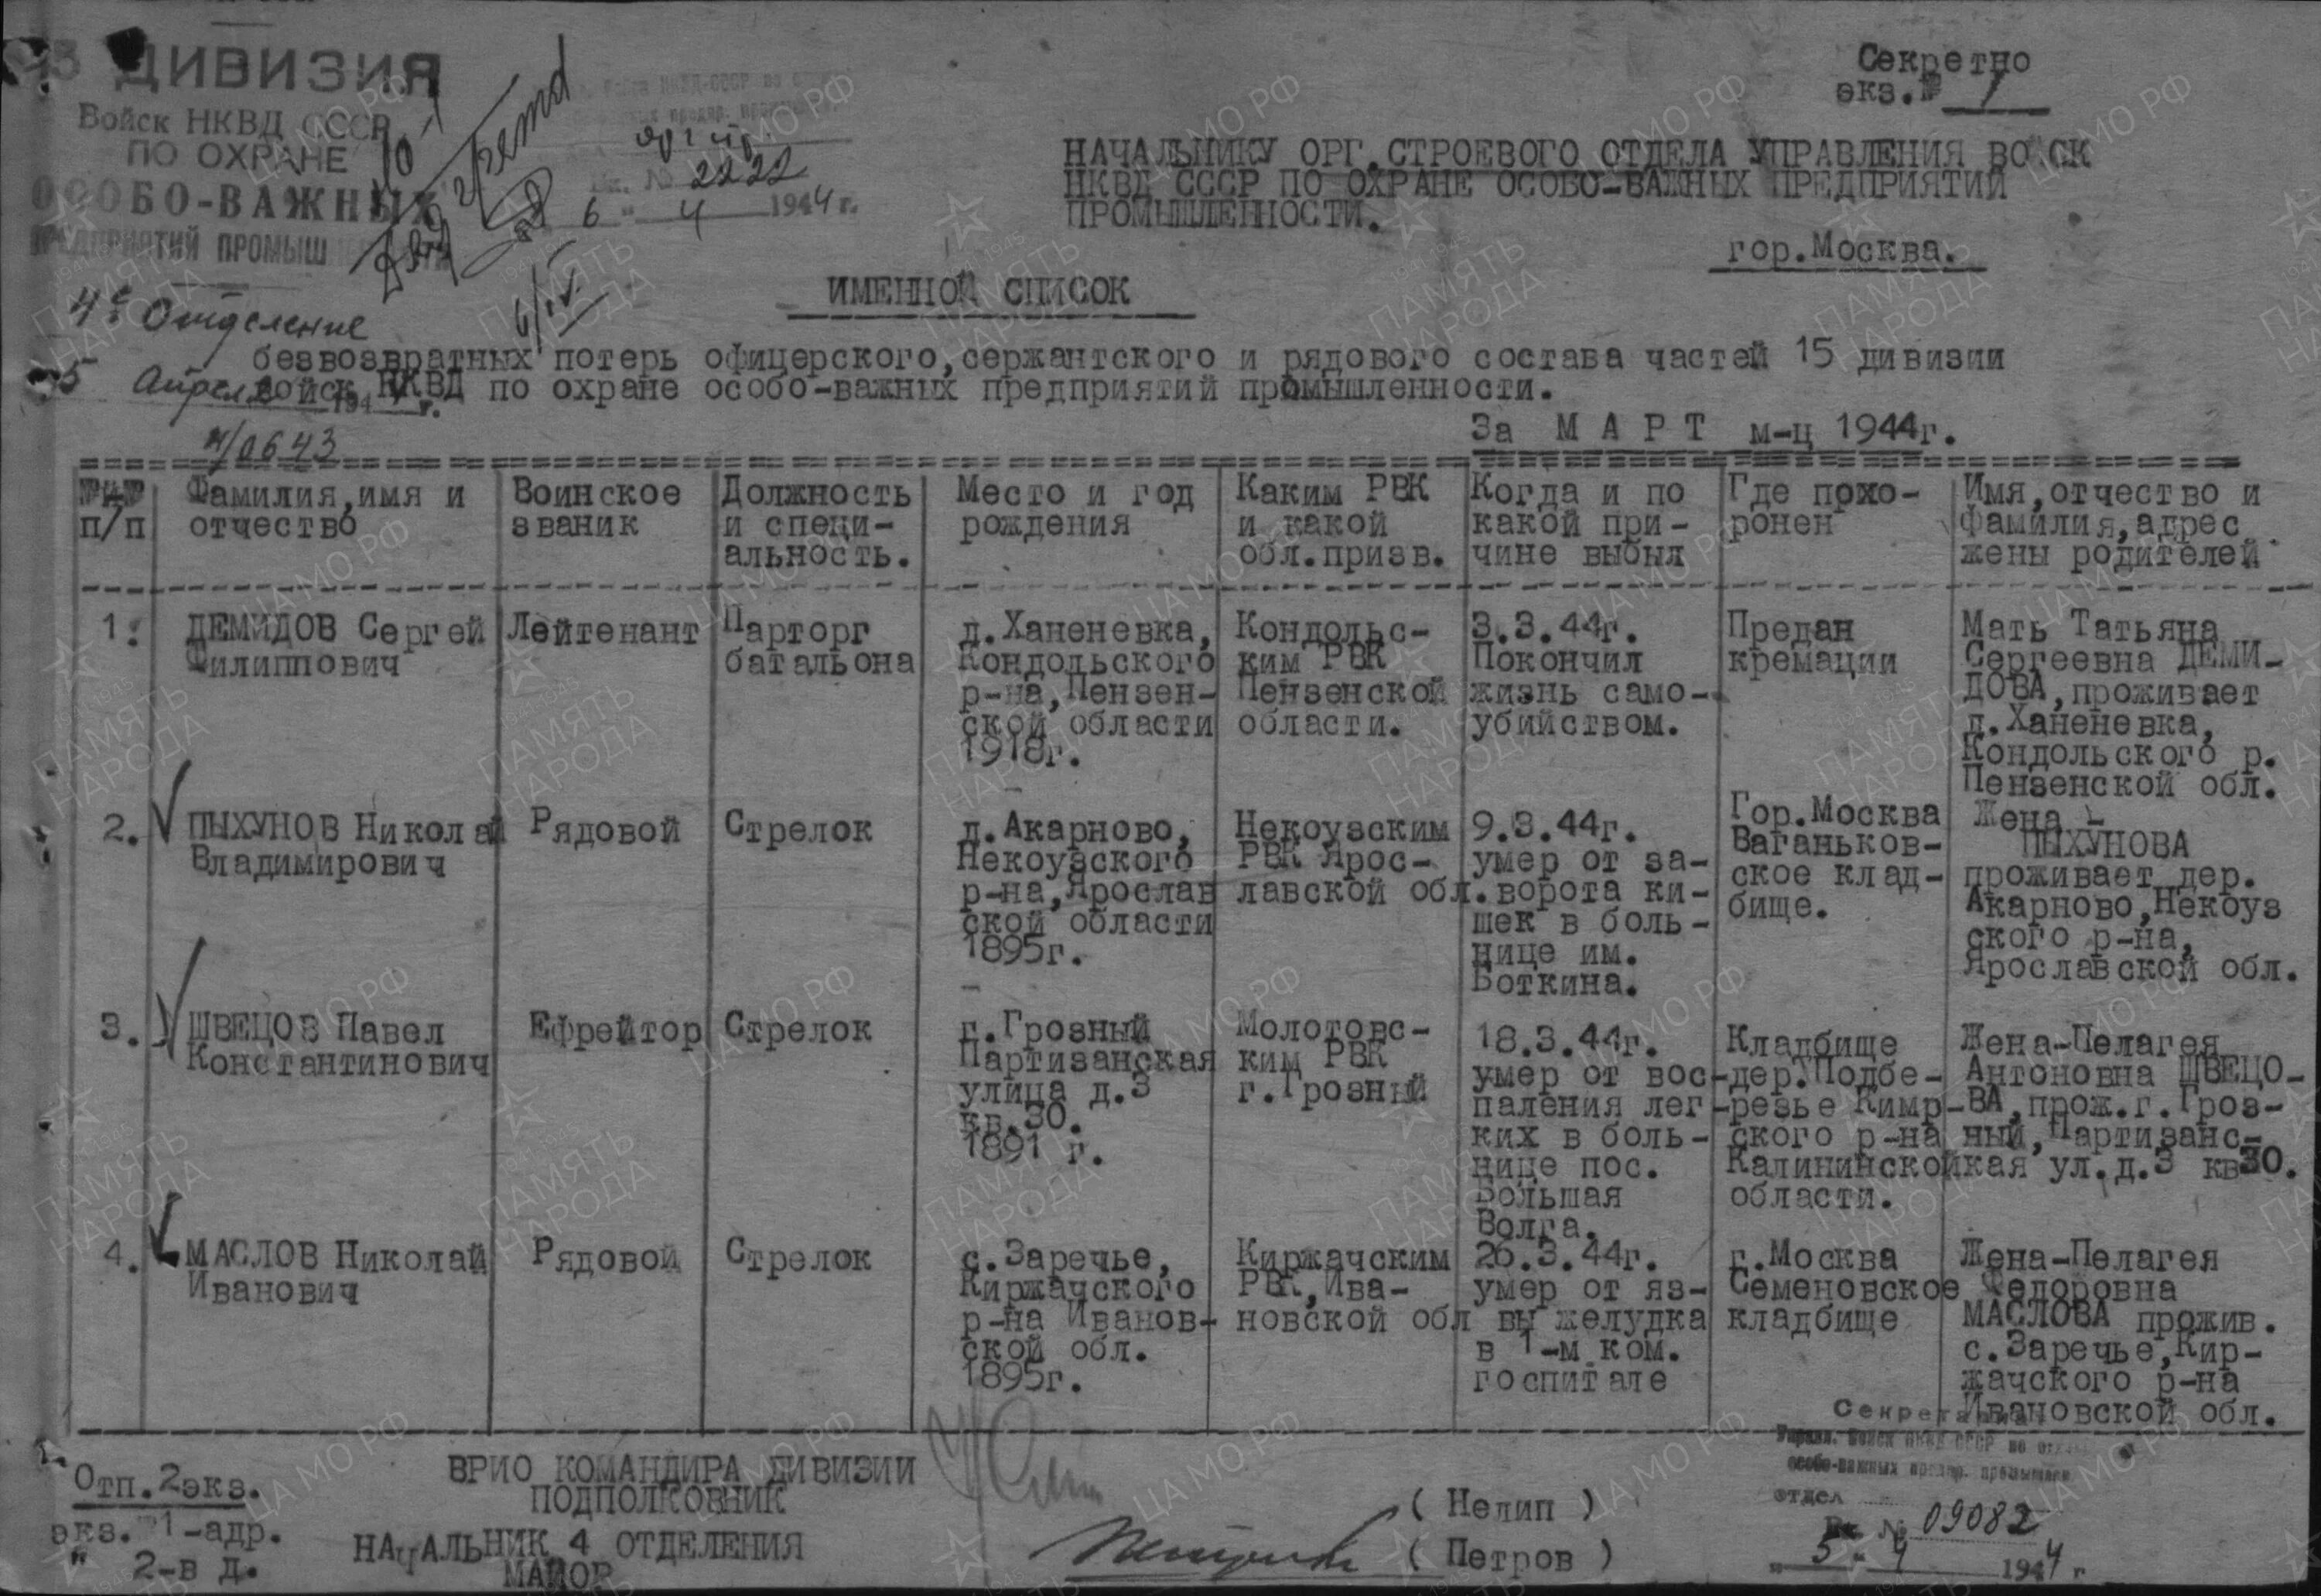 ДИВИЗИЯ
Войск НКВД СССР
ПО ОХРАНЕ
ОСОБО-ВАЖНЫХ
ПРЕДПРИЯТИЙ ПРОМЫШ
4е Отделение
5 Апреля 1944 г.
4/0643
Вх. № 2222
6 " 4 1944 г.
6/IV
Секретно
экз.№ 1
НАЧАЛЬНИКУ ОРГ.СТРОЕВОГО ОТДЕЛА УПРАВЛЕНИЯ ВОЙСК
НКВД СССР ПО ОХРАНЕ ОСОБО-ВАЖНЫХ ПРЕДПРИЯТИЙ
ПРОМЫШЛЕННОСТИ.
гор.Москва.
ИМЕННОЙ СПИСОК
безвозвратных потерь офицерского,сержантского и рядового состава частей 15 дивизии
войск НКВД по охране особо-важных предприятий промышленности.
За МАРТ м-ц 1944г.
№№ п/п
Фамилия,имя и
отчество
Воинское
званик
Должность
и специ-
альность.
Место и год
рождения
Каким РВК
и какой
обл.призв.
Когда и по
какой при-
чине выбыл
Где похо-
ронен
Имя,отчество и
фамилия,адрес
жены родителей
1.
ДЕМИДОВ Сергей
Филиппович
Лейтенант
Парторг
батальона
д.Ханеневка,
Кондольского
р-на,Пензен-
ской области
1918г.
Кондольс-
ким РВК
Пензенской
области.
3.3.44г.
Покончил
жизнь само-
убийством.
Предан
кремации
Мать Татьяна
Сергеевна ДЕМИ-
ДОВА,проживает
д.Ханеневка,
Кондольского р.
Пензенской обл.
2.
ПЫХУНОВ Николай
Владимирович
Рядовой
Стрелок
д.Акарново,
Некоузского
р-на,Ярослав
ской области
1895г.
Некоузским
РВК Ярос-
лавской обл.
9.3.44г.
умер от за-
ворота ки-
шек в боль-
нице им.
Боткина.
Гор.Москва
Ваганьков-
ское клад-
бище.
Жена -
ПЫХУНОВА
проживает дер.
Акарново,Некоуз
ского р-на,
Ярославской обл.
3.
ШВЕЦОВ Павел
Константинович
Ефрейтор
Стрелок
г.Грозный
Партизанская
улица д.3
кв.30.
1891 г.
Молотовс-
ким РВК
г.Грозный
18.3.44г.
умер от вос-
паления лег-
ких в боль-
нице пос.
Большая
Волга.
Кладбище
дер.Подбе-
резье Кимр-
ского р-на
Калининской
области.
Жена-Пелагея
Антоновна ШВЕЦО-
ВА,прож.г.Гроз-
ный,Партизанс-
кая ул.д.3 кв30.
4.
МАСЛОВ Николай
Иванович
Рядовой
Стрелок
с.Заречье,
Киржачского
р-на Иванов-
ской обл.
1895г.
Киржачским
РВК,Ива-
новской обл
26.3.44г.
умер от яз-
вы желудка
в 1-м ком.
госпитале
г.Москва
Семеновское
кладбище
Жена-Пелагея
Федоровна
МАСЛОВА прожив.
с.Заречье,Кир-
жачского р-на
Ивановской обл.
Отп.2экз.
экз. 1-адр.
" 2-в д.
ВРИО КОМАНДИРА ДИВИЗИИ
ПОДПОЛКОВНИК
( Нелип )
НАЧАЛЬНИК 4 ОТДЕЛЕНИЯ
МАЙОР
( Петров )
Секретариат
Управл. Войск НКВД СССР по охране
особо-важных предпр. промышлен.
отдел
Вх № 09082
" 5 " 4 1944 г
ЦА МО РФ
ПАМЯТЬ
НАРОДА
1941 1945